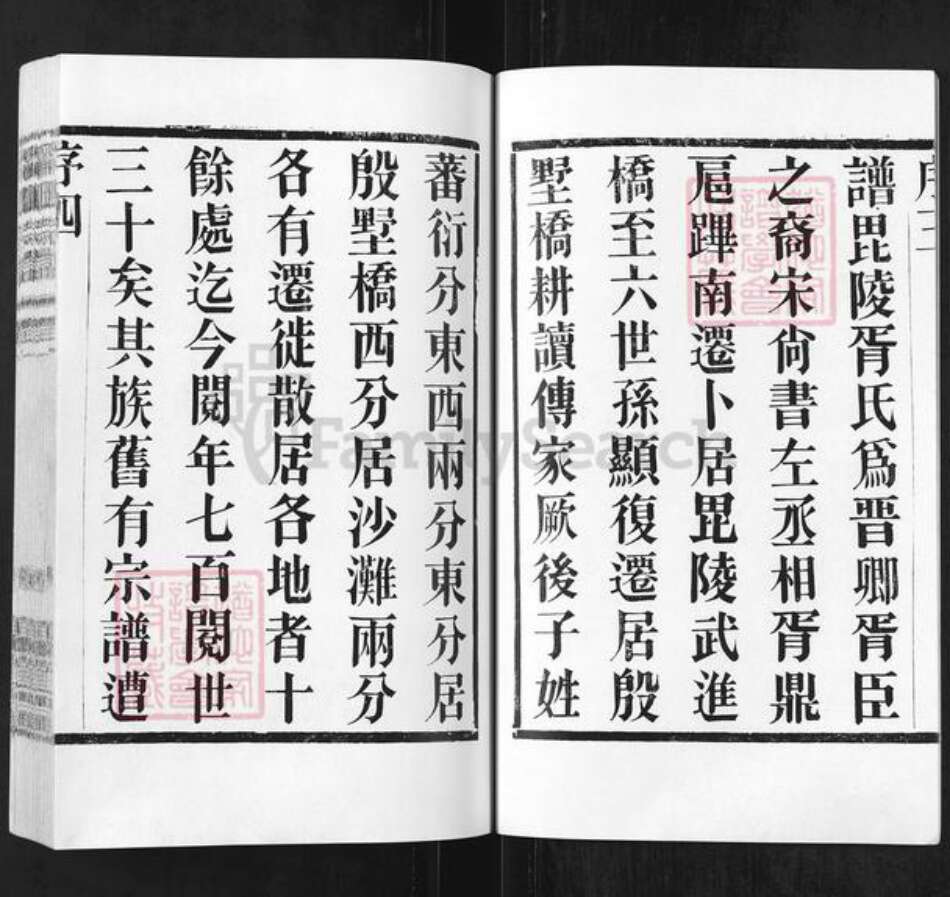 譜毘陵胥氏爲晋卿胥臣
之裔宋尙書左丞相胥鼎
扈蹕南遷卜居毘陵武進
橋至六世孫顯復遷居殷
墅橋耕讀傳家厥後子姓
蕃衍分東西兩分東分居
殷墅橋西分居沙灘兩分
各有遷徙散居各地者十
餘處迄今閱年七百閱世
三十矣其族舊有宗譜遭
序四
FamilySearch